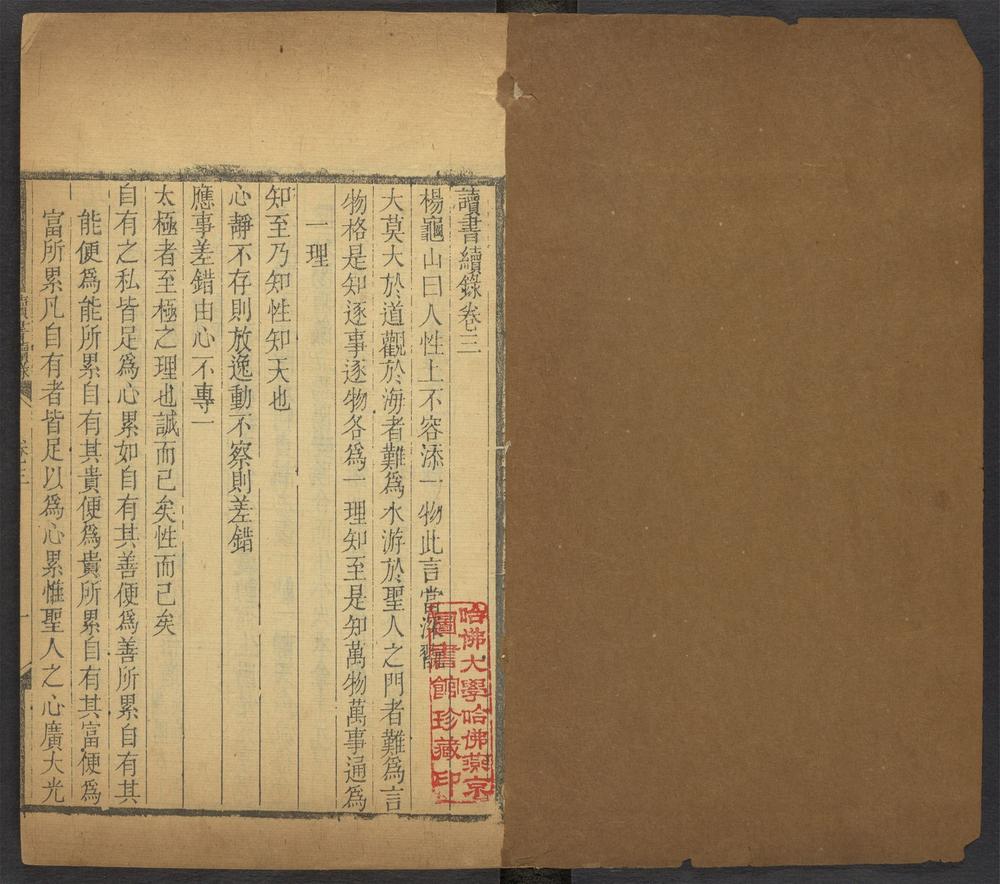 讀書續錄卷三
楊龜山曰人性上不容添一物此言當深翫
大莫大於道觀於海者難爲水游於聖人之門者難爲言
物格是知逐事逐物各爲一理知至是知萬物萬事通爲
一理
知至乃知性知天也
心靜不存則放逸動不察則差錯
應事差錯由心不專一
太極者至極之理也誠而已矣性而已矣
自有之私皆足爲心累如自有其善便爲善所累自有其
能便爲能所累自有其貴便爲貴所累自有其富便爲
富所累凡自有者皆足以爲心累惟聖人之心廣大光
讀書續錄
卷三
一
哈佛大學哈佛燕京
圖書館珍藏印